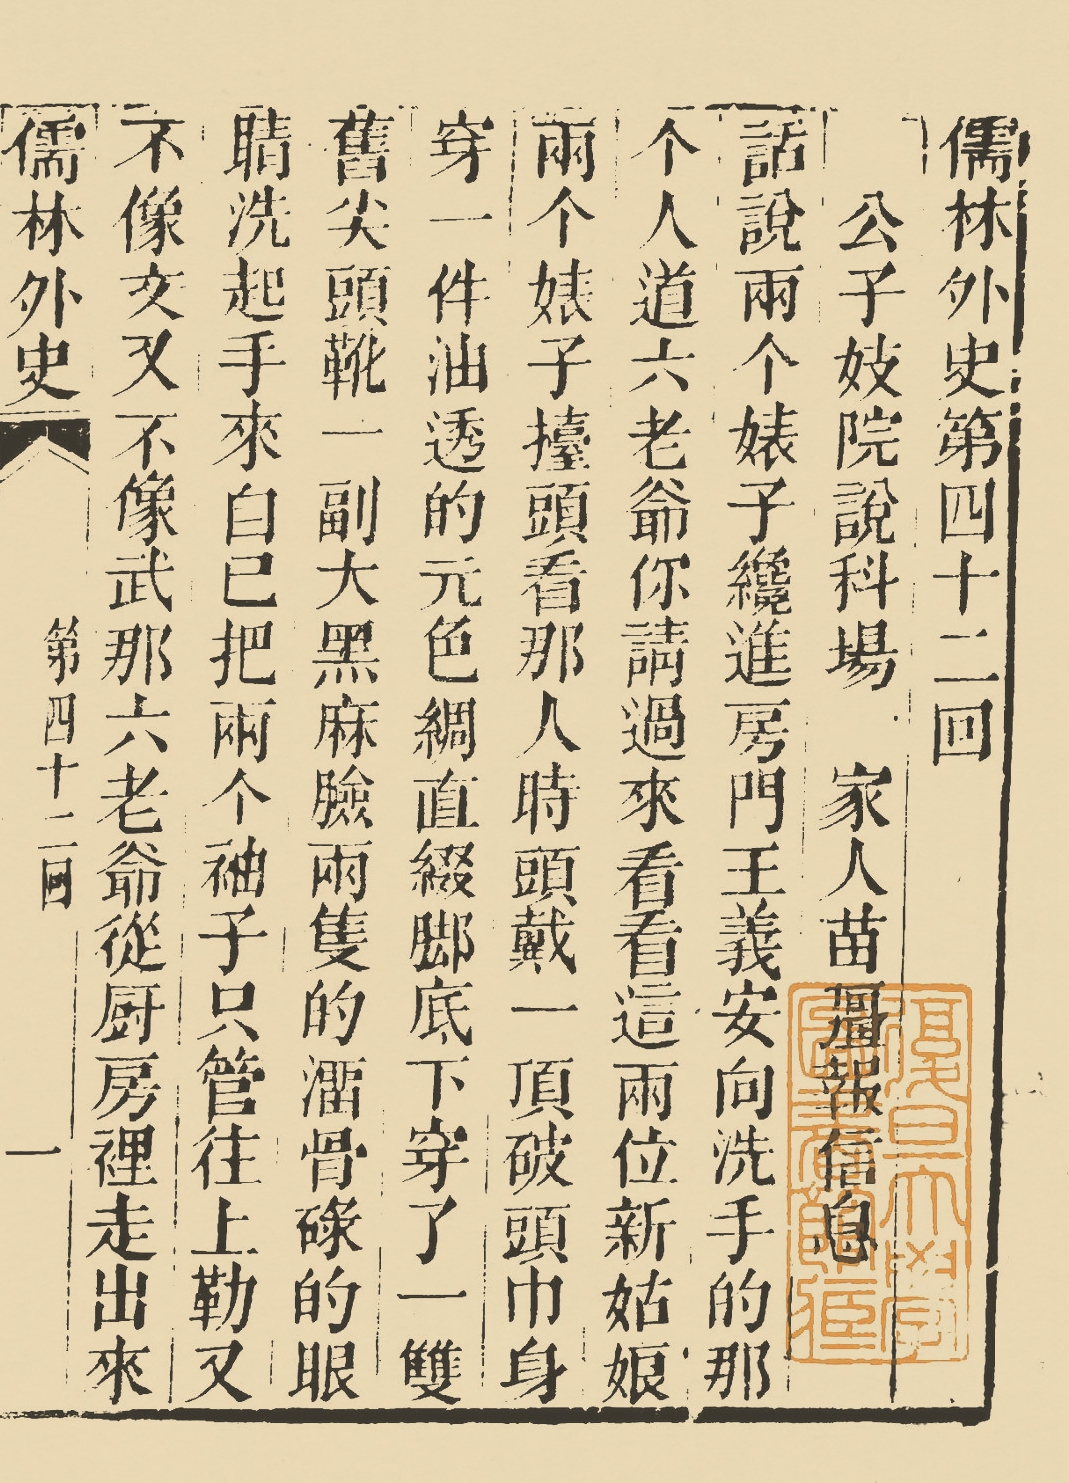 儒林外史第四十二回
公子妓院說科場　家人苗疆報信息
話說兩个婊子纔進房門王義安向洗手的那
个人道六老爺你請過來看看這兩位新姑娘
兩个婊子擡頭看那人時頭戴一頂破頭巾身
穿一件油透的元色綢直綴脚底下穿了一雙
舊尖頭靴一副大黑麻臉兩隻的溜骨碌的眼
睛洗起手來自已把兩个袖子只管往上勒又
不像文又不像武那六老爺從厨房裡走出來
儒林外史
第四十二回
一
復旦大學圖書館藏